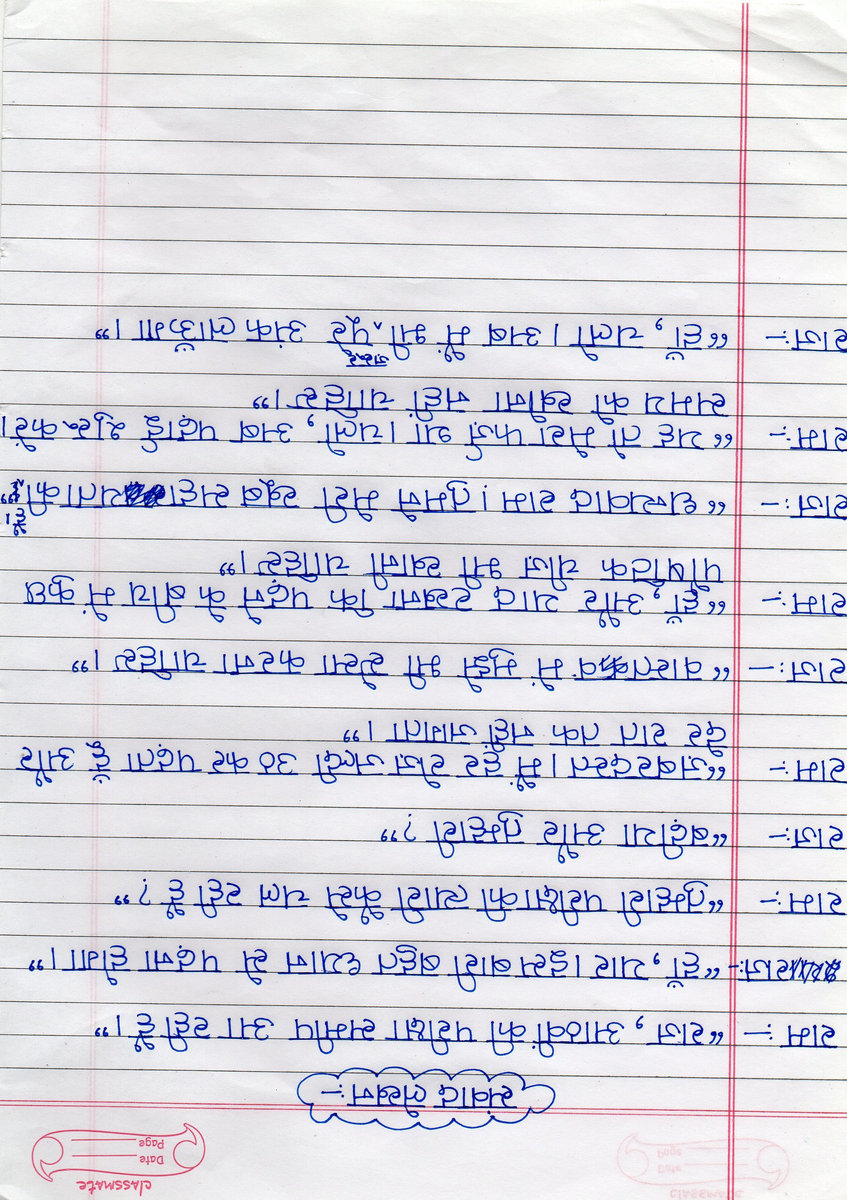 classmate
Date
Page
संवाद लेखन :-
राम :- “राज, आठवीं की परीक्षा समीप आ रही है।”
राज :- “हाँ, यार। इस बारी बहुत ध्यान से पढ़ना होगा।”
राम :- “तुम्हारी परीक्षा की त्यारी कैसे चल रही है?”
राज :- “बढ़ीया और तुम्हारी?”
राम :- “ज़बरदस्त। मैं हर रोज जल्दी उठ कर पढ़ता हूँ और
देर रात तक नहीं जागता।”
राज :- “वास्तव में मुझे भी ऐसा करना चाहिए।”
राम :- “हाँ, और याद रखना कि पढ़ने के बीच में कुछ
पौष्टिक चीज भी खानी चाहिए।”
राज :- “धन्यवाद राम। तुमने मेरी खूब सहायता की है।”
राम :- “यह तो मेरा फर्ज था। चलो, अब पढ़ाई शुरु करें।
समय को खोना नहीं चाहिए।”
राज :- “हाँ, चलो। अब मैं भी पूरे अंक लाऊँगा।”